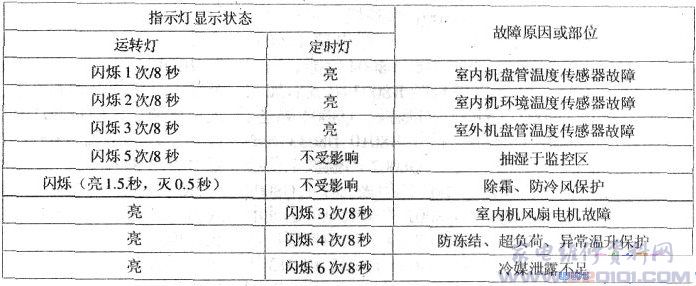 指示灯显示状态 故障原因或部位
运转灯 定时灯
闪烁1次/8秒 亮 室内机盘管温度传感器故障
闪烁2次/8秒 亮 室内机环境温度传感器故障
闪烁3次/8秒 亮 室外机盘管温度传感器故障
闪烁5次/8秒 不受影响 抽湿于监控区
闪烁(亮1.5秒,灭0.5秒) 不受影响 除霜、防冷风保护
亮 闪烁3次/8秒 室内机风扇电机故障
亮 闪烁4次/8秒 防冻结、超负荷、异常温升保护
亮 闪烁6次/8秒 冷媒泄露不足
家电维修资料网